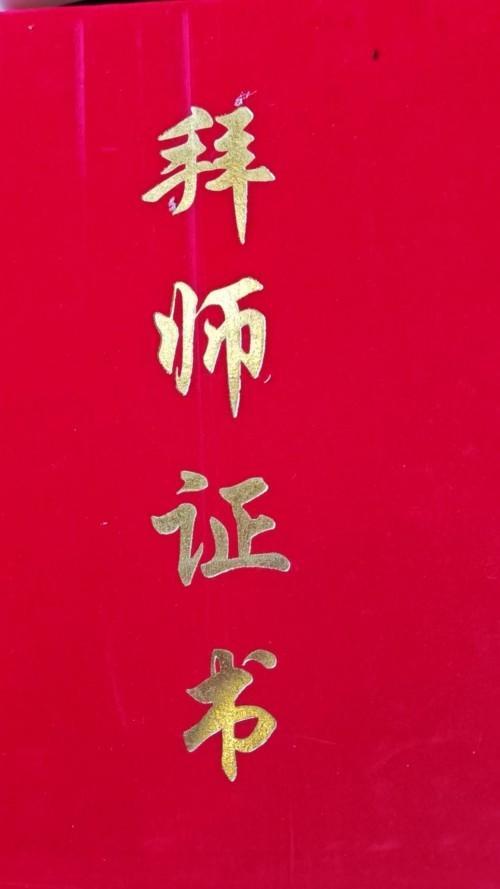 拜师证书